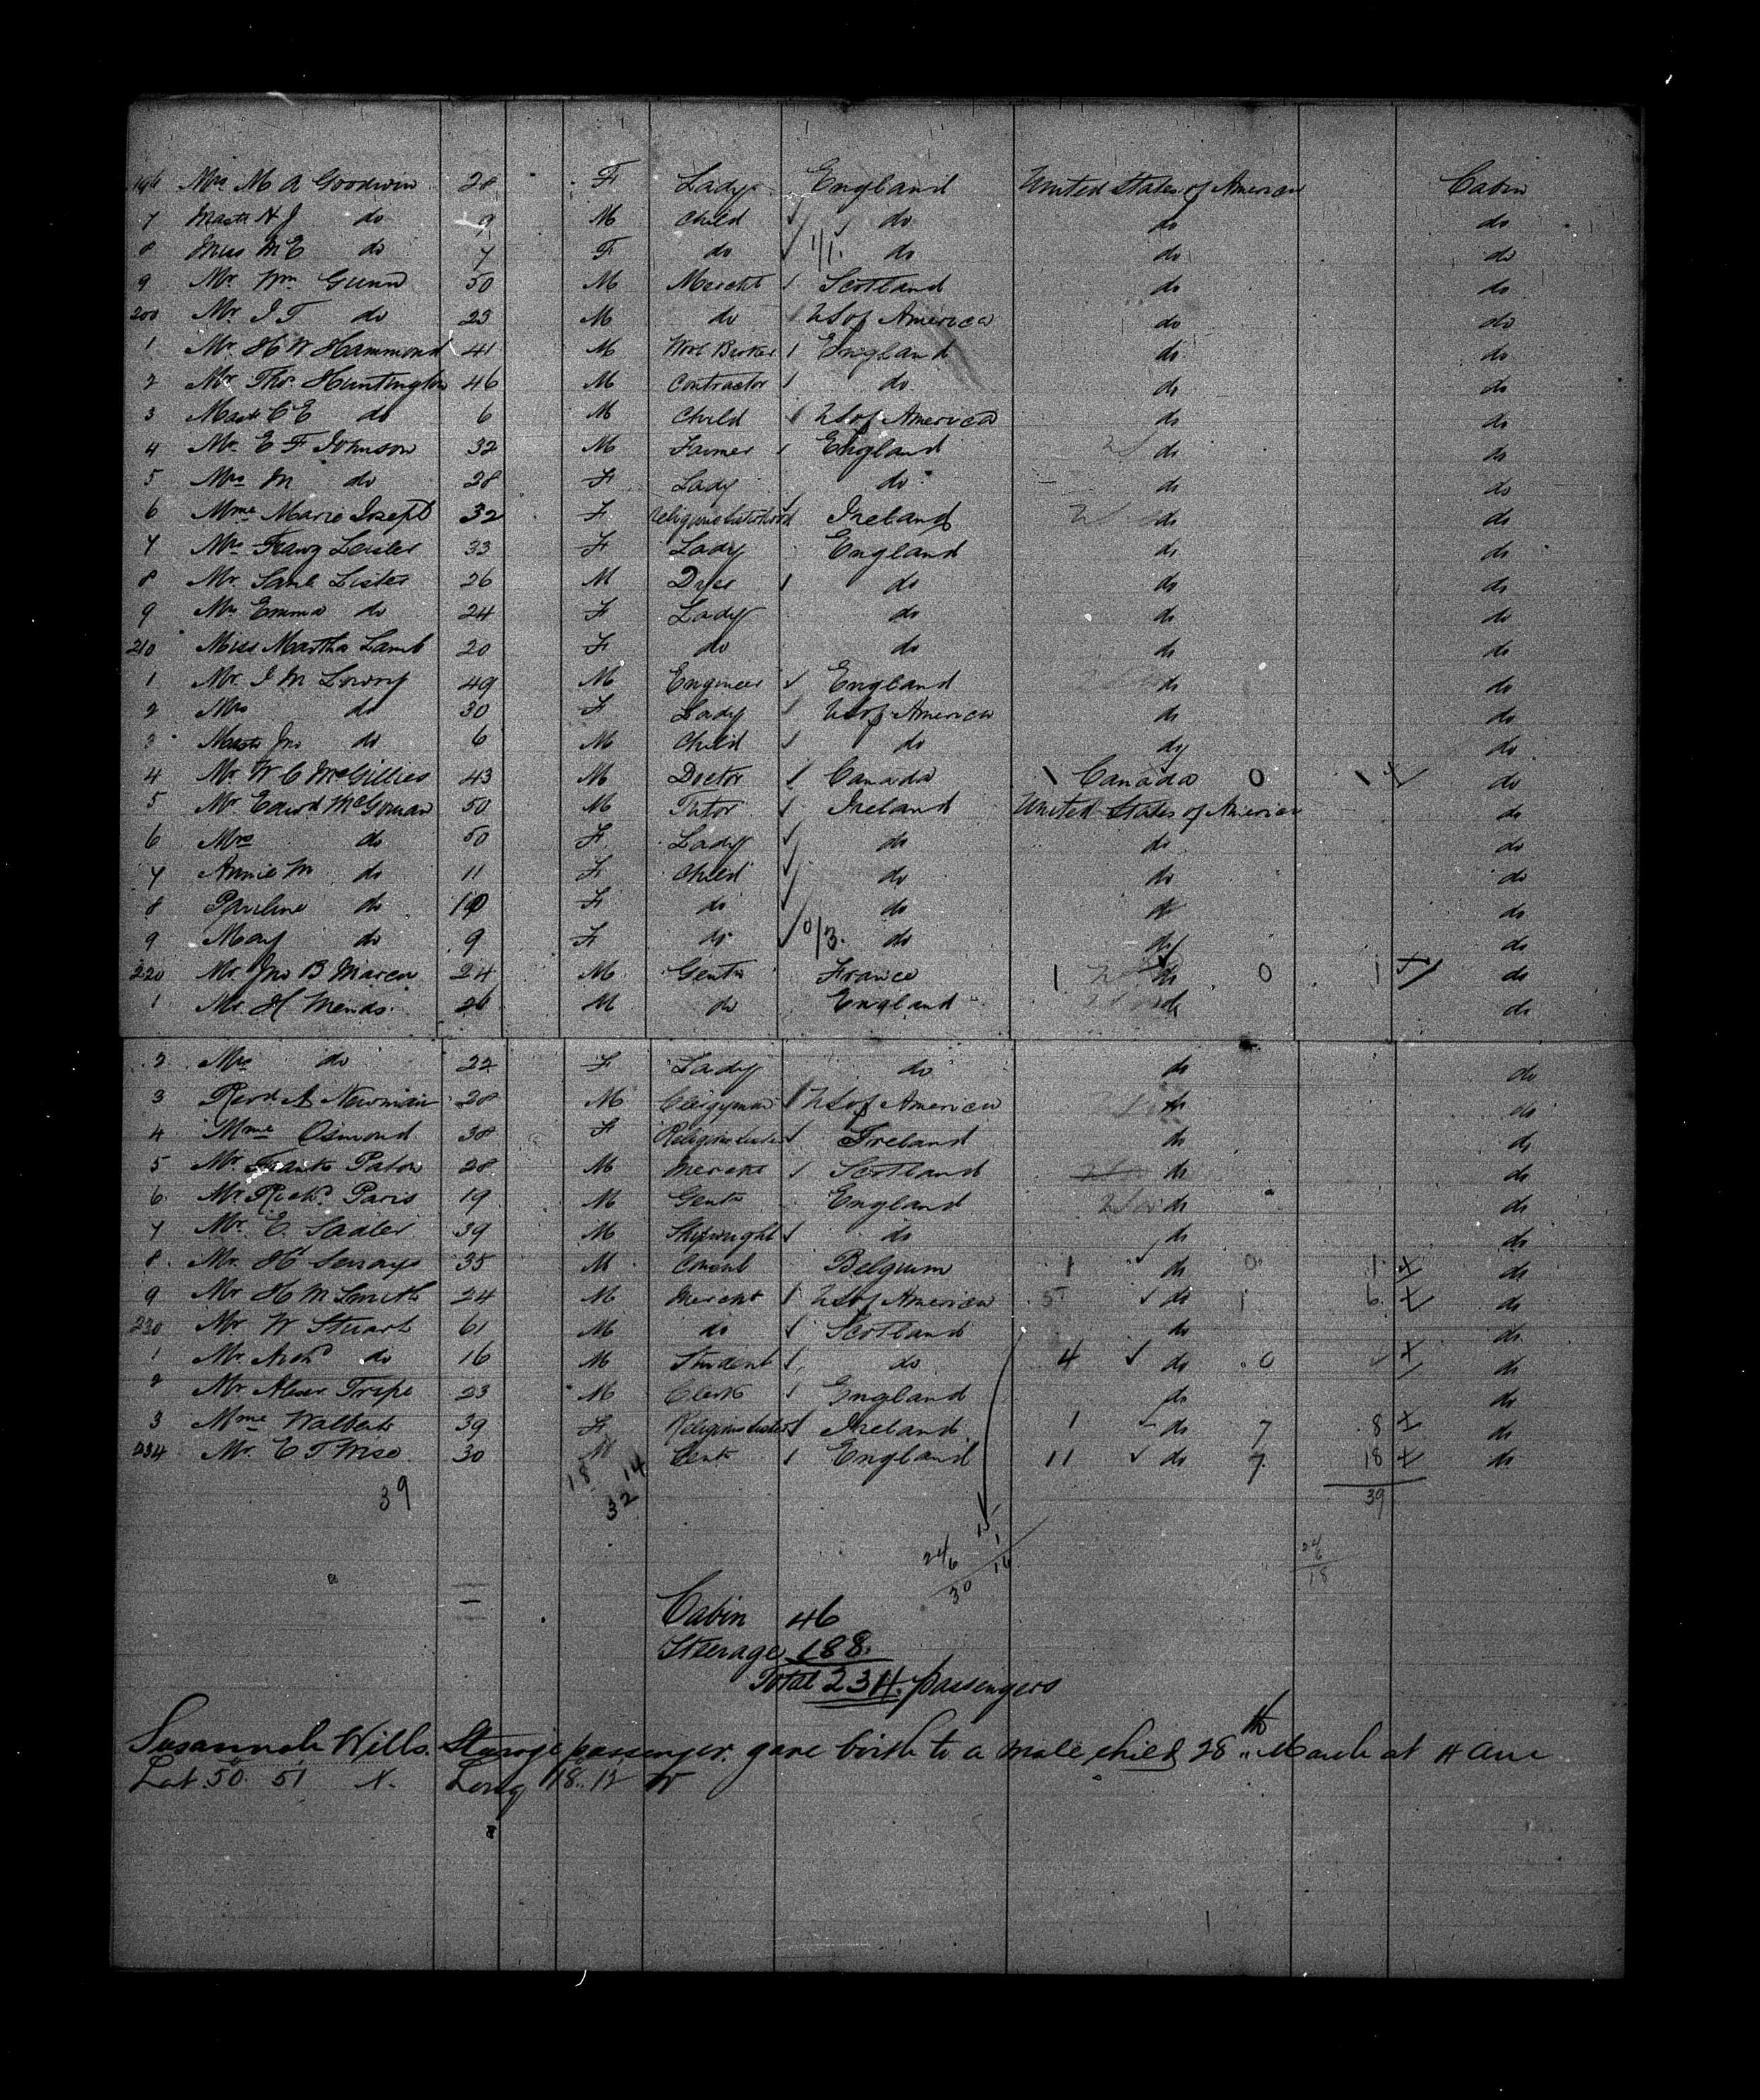 196 Mrs M A Goodwin 28 F Lady England United States of America Cabin
7 Mastr H J do 9 M Child do do do
8 Miss M E do 7 F do 1/1. do do do
9 Mr Wm Gunn 50 M Mercht Scotland do do
200 Mr J T do 23 M do US of America do do
1 Mr H W Hammond 41 M Wool Broker England do do
2 Mr Thos Huntington 46 M Contractor do do do
3 Mastr C E do 6 M Child US of America do do
4 Mr E F Johnson 32 M Farmer England do do
5 Mrs M do 28 F Lady do do do
6 Mme Marie Joseph 32 F Ireland do do
7 Mrs Leister 33 F Lady England do do
8 Mr Saml Lister 26 M Dyer do do do
9 Mrs Emma do 24 F Lady do do do
210 Miss Martha Lamb 20 F do do do do
1 Mr J M Lowry 49 M Engineer England do do
2 Mrs do 30 F Lady US of America do do
3 Mastr Jno do 6 M Child do do do
4 Mr W C McGillies 43 M Doctor Canada 1 Canada 0 1 do
5 Mr Edwd McGorman 50 M Tutor Ireland United States of America do
6 Mrs do 50 F Lady do do do
7 Annie M do 11 F Child do do do
8 Pauline do 10 F do do do do
9 May do 9 F do 0/3. do do do
220 Mr Jno B Marca 24 M Gentn France 1 do 0 1 do
1 Mr H Mends 26 M do England do do
2 Mrs do 22 F Lady do do do
3 Revd A Newman 28 M Clergyman US of America do do
4 Mme Osmond 38 F Religious Sister Ireland do do
5 Mr Frank Paton 28 M Mercht Scotland do do
6 Mr Richd Paris 19 M Gentn England do do
7 Mr E. Sadler 39 M Shipwright do do do
8 Mr Hd Serrays 35 M Consul Belgium 1 do 0 1 do
9 Mr H M Smith 24 M Mercht US of America 5 do 1 6 do
230 Mr W Stuart 61 M do Scotland do do
1 Mr Archd do 16 M Student do 4 do 0 do
2 Mr Alexr Tripe 23 M Clerk England do do
3 Mme Walberts 39 F Religious Sister Ireland 1 do 7 8 do
234 Mr E T Wise 30 M Gentn England 11 do 7 18 do
39 18 14 39
32
24/6 15 1
30 16
24
6
18
Cabin 46
Steerage 188
Total 234 passengers
Susannah Wills. Steerage passenger. gave birth to a male child 28th March at 4 am
Lat 50. 51 N. Long 18. 12 W